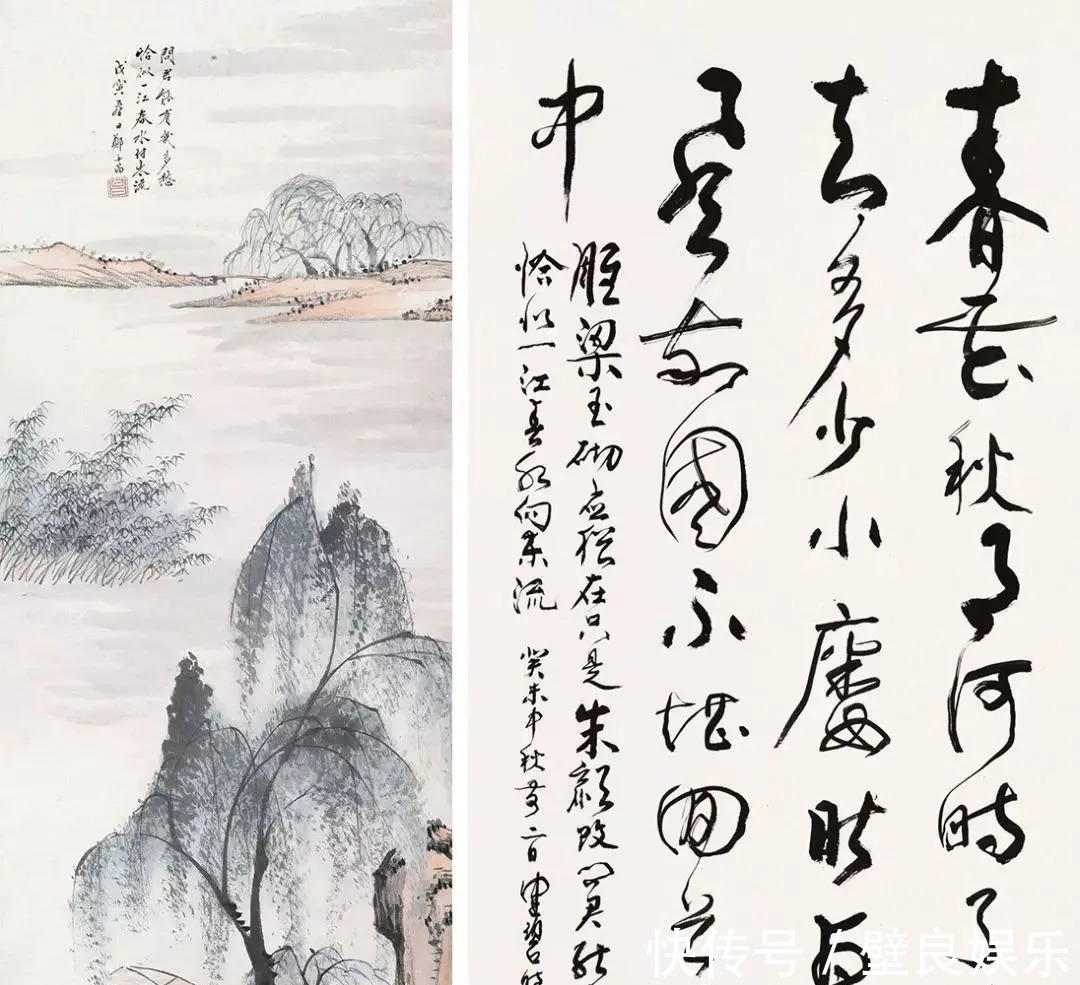 問君能有幾多愁
恰似一江春水付東流
戊寅春日鄭
春花秋月何時了
知多少小樓昨
風故國不堪回首
中
雕梁玉砌应猶在只是朱顏改問君能
恰似一江春水向東流 癸未中秋
快传号/壁良娱乐